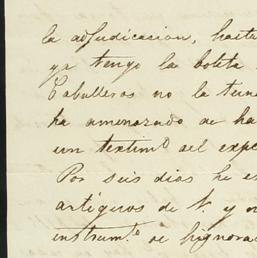 la adjudicacion, hasta
ya tengo la boleta
Caballeros no la tiene
ha amenazado de ha
un textimº del expe
Por seis dias he es
artigueros de N. y
instrumº. de